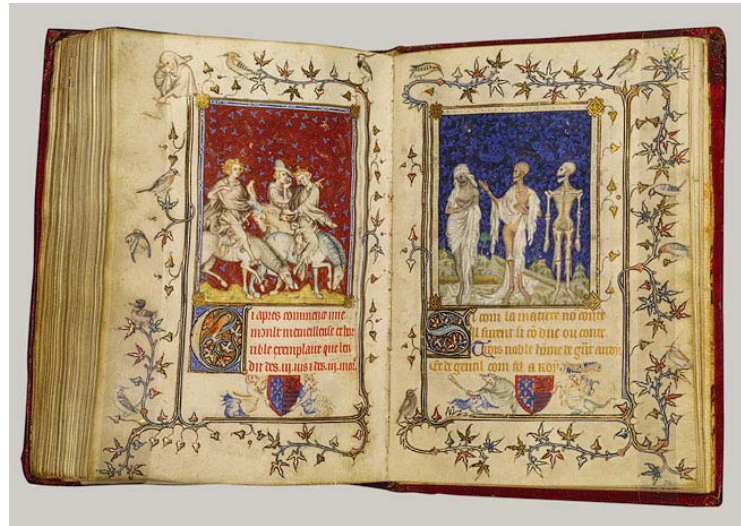 Ci apres commence une
moult merveilleuse et hor
rible exemplaire que len
dit des .iij. vis ⁊ des .iij. mors
Si com la matiere nō conte
Il furent si cō duc ou conte
Trois noble hōme de grāt arroy
Et de gentil com fil a roy